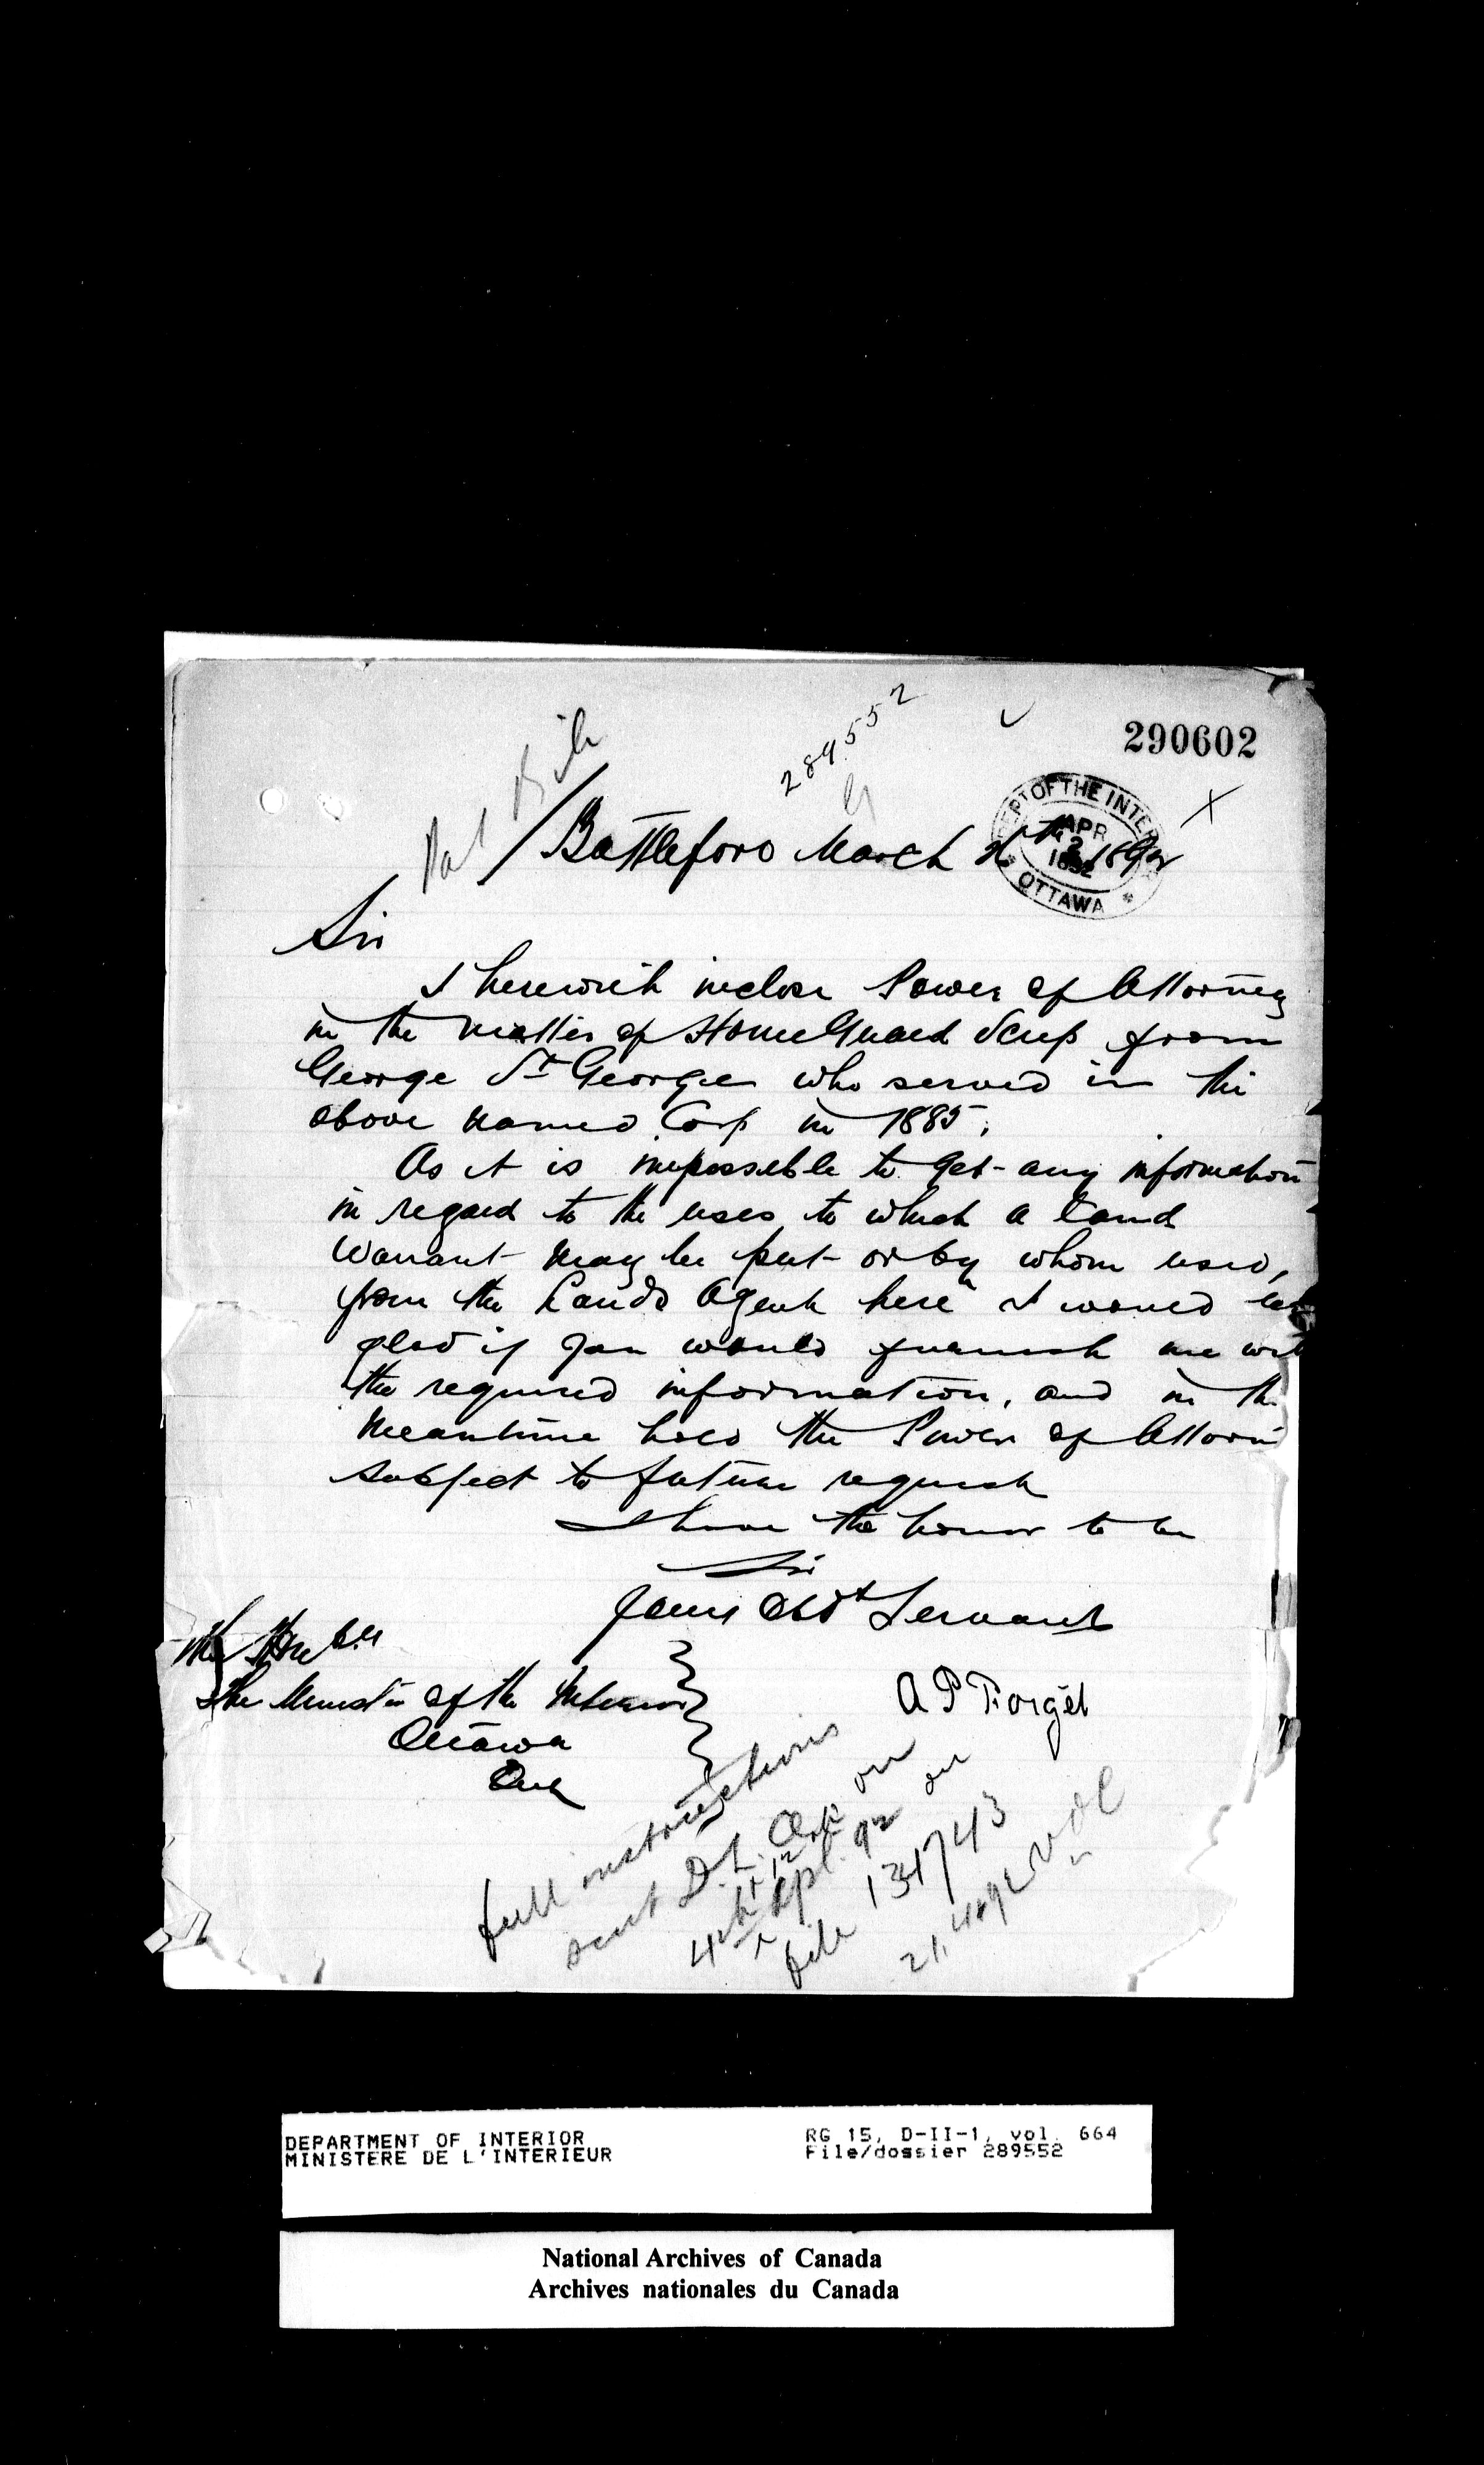 290602
289552
Battleford March 1892
DEPT OF THE INTERIOR
APR 2
1892
OTTAWA
Sir
I herewith inclose Power of Attorney
in the matter of Home Guard Scrip from
George St Georges who served in the
above named Corp in 1885.
As it is impossible to get any information
in regard to the uses to which a Land
Warrant may be put or by whom used,
from the Lands Agent here I would be
glad if you would furnish me with
the required information, and in the
meantime hold the Power of Attorn
subject to future request
I have the honor to be
Sir
Your Obdt Servant
A P Forget
The Honble
The Minister of the Interior
Ottawa
Ont
full instructions
sent D.L. on
4th 92 on
file 134743
DEPARTMENT OF INTERIOR
MINISTERE DE L'INTERIEUR
RG 15, D-II-1, vol. 664
File/dossier 289552
National Archives of Canada
Archives nationales du Canada